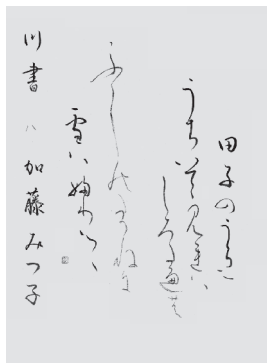 田子のうらに
うちいて見れハ
しろたへの
ふしのたかねに
雪ハ婦りつゝ
川書 八 加藤みつ子